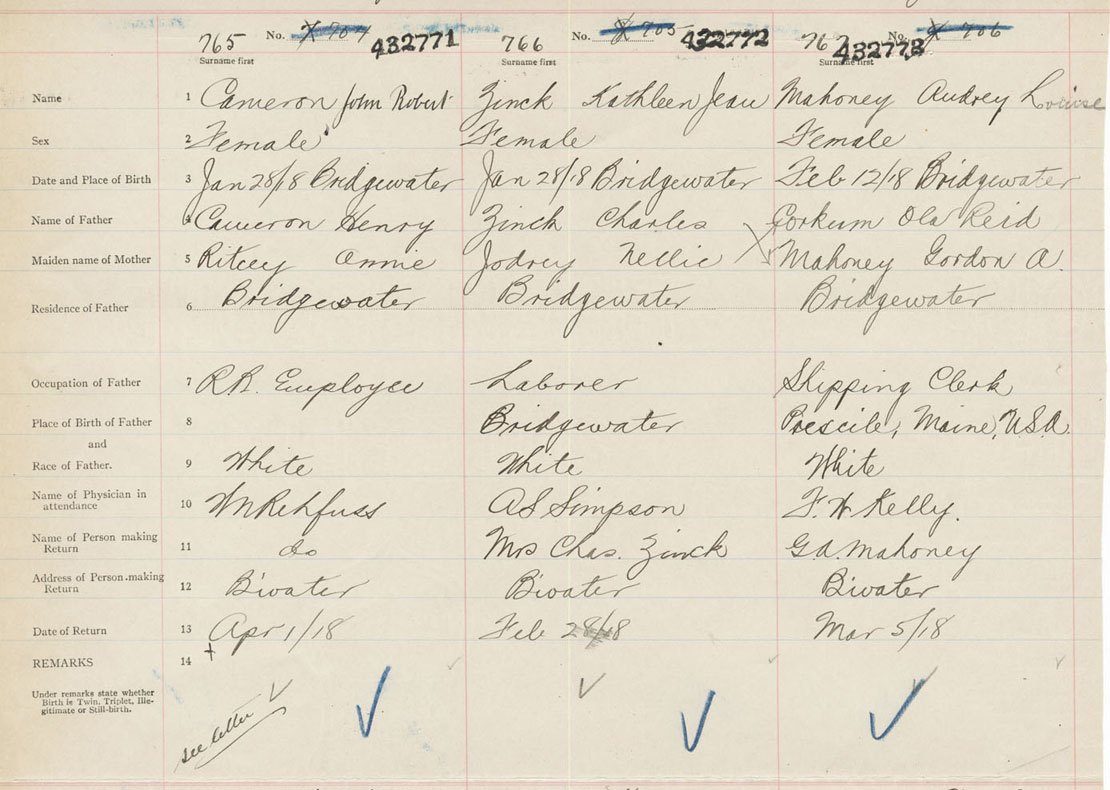 765 No. X 704 432771 766 No. X 705 432772 767 No. X 706 432773
Surname first Surname first Surname first
Name 1 Cameron John Robert Zinck Kathleen Jean Mahoney Audrey Louise
Sex 2 Female Female Female
Date and Place of Birth 3 Jan 28/18 Bridgewater Jan 28/18 Bridgewater Feb 12/18 Bridgewater
Name of Father 4 Cameron Henry Zinck Charles Gorkum Ola Reid
Maiden name of Mother 5 Ritcey Annie Jodrey Nellie Mahoney Gordon A.
Residence of Father 6 Bridgewater Bridgewater Bridgewater
Occupation of Father 7 RR. Employee Laborer Shipping Clerk
Place of Birth of Father 8 Bridgewater Prescile, Maine, U.S.A.
and
Race of Father. 9 White White White
Name of Physician in
attendance 10 WN Rehfuss AS Simpson F. W Kelly.
Name of Person making
Return 11 do Mrs Chas. Zinck G.A. Mahoney
Address of Person making
Return 12 B'water B'water B'water
Date of Return 13 Apr 1/18 Feb 28/18 Mar 5/18
REMARKS 14
Under remarks state whether
Birth is Twin, Triplet, Ille-
gitimate or Still-birth.
see letter